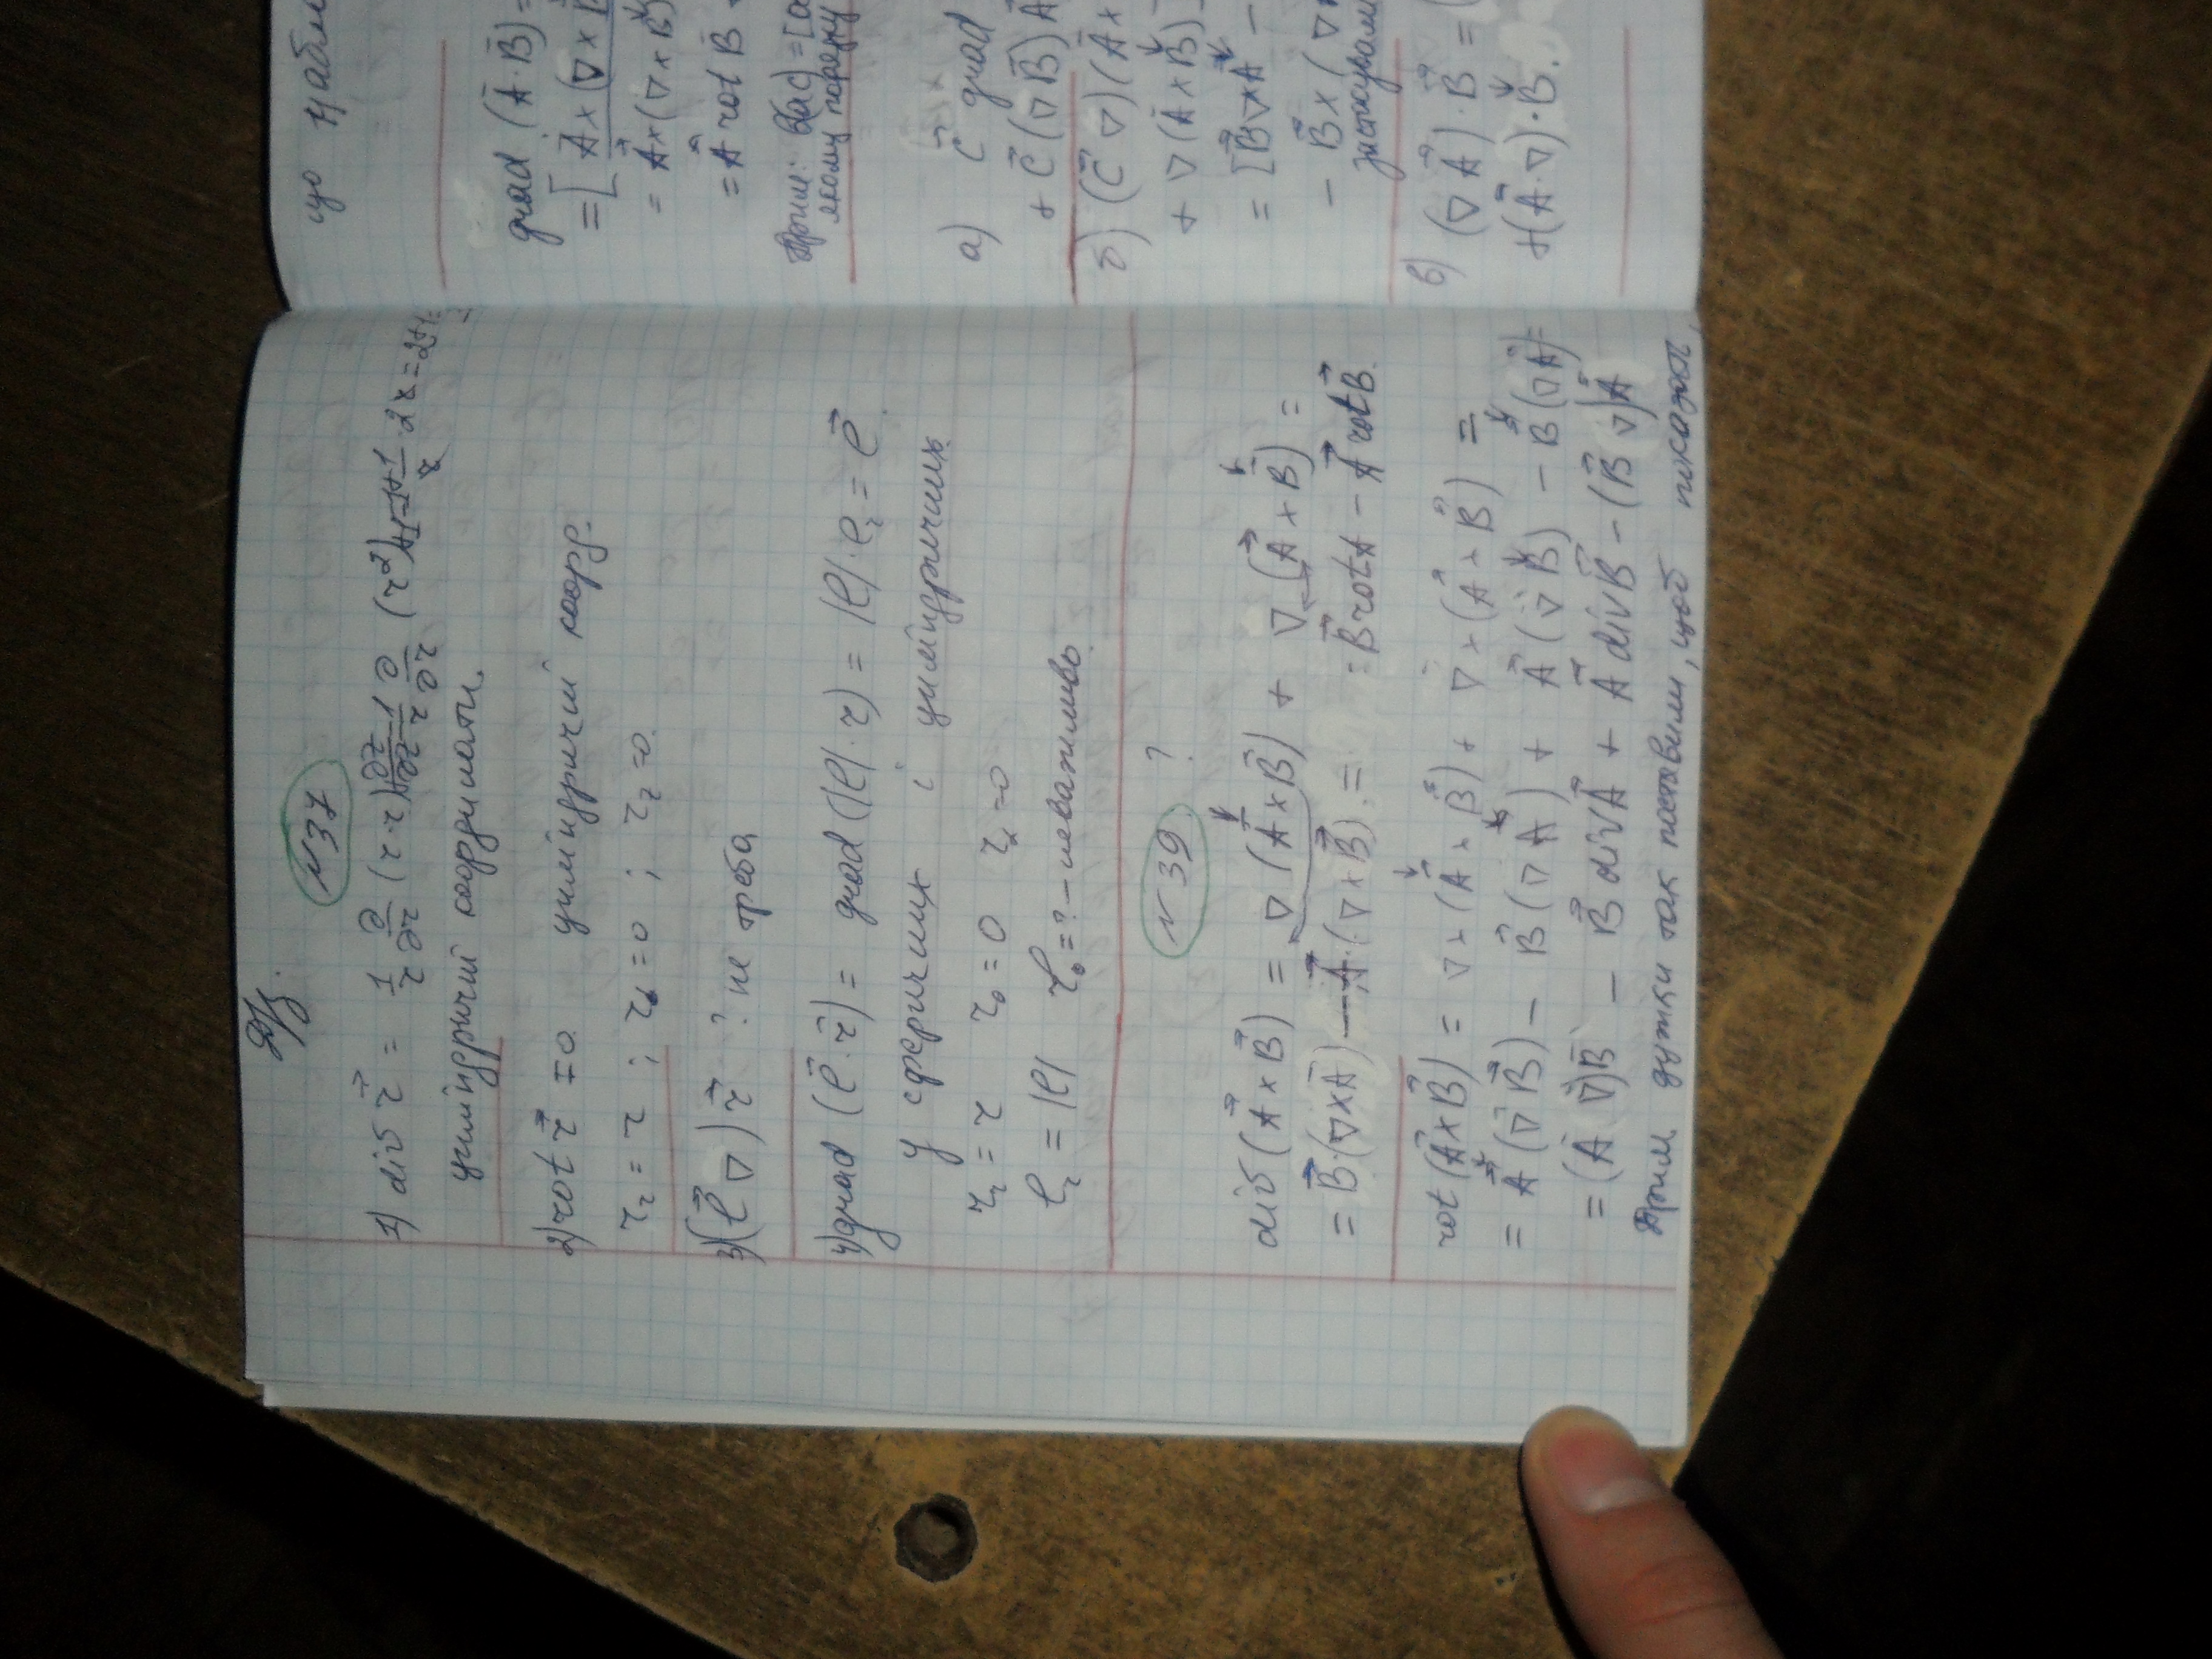 Д/з.
N37
1) div r⃗ = 1/r ∂/∂r (r·r) 1/r ∂/∂r (r²) 1/r · 2r = 2
циліндричні координати.
2) rot r⃗ = 0 циліндричні коорд.
r_r = r ; = 0 ; r_z = 0.
3) (l⃗ ∇) r⃗ ? не треба
4) grad (l⃗·r⃗) = grad (|l|·r) = |l|·e_r = l⃗.
у сферичних і циліндричних.
r_r = r r_θ = 0 = 0
l_r = |l| = ? – неважливо.
N39 ?
div (A⃗×B⃗) = ∇ (A⃗×B⃗) + ∇ (A⃗×B⃗) =
= B⃗·(∇×A⃗) – A⃗·(∇×B⃗) = = B⃗ rot A – A⃗ rot B⃗.
rot (A⃗×B⃗) = ∇×(A⃗×B⃗) + ∇×(A⃗×B⃗) =
= A⃗ (∇B⃗) – B⃗ (∇A⃗) + A⃗ (∇B⃗) – B⃗ (∇A⃗) =
= (A⃗ ∇)B⃗ – B⃗ div A⃗ + A⃗ div B⃗ – (B⃗ ∇)A⃗
Прим. дужки так поставили, щоб показати,
що Набла
grad (A⃗·B⃗) =
= [A⃗×(∇×
= A⃗×(∇×B⃗)
= A⃗ rot B⃗
якому порядку
а) C⃗ grad
+ C⃗ (∇B⃗) A
б) (C⃗ ∇)(A⃗×
+ ∇(A⃗×B⃗)
= [B⃗∇×A⃗ –
– B⃗×(∇
застосували
в) (∇A⃗)·B⃗ =
+(A⃗·∇)·B⃗.